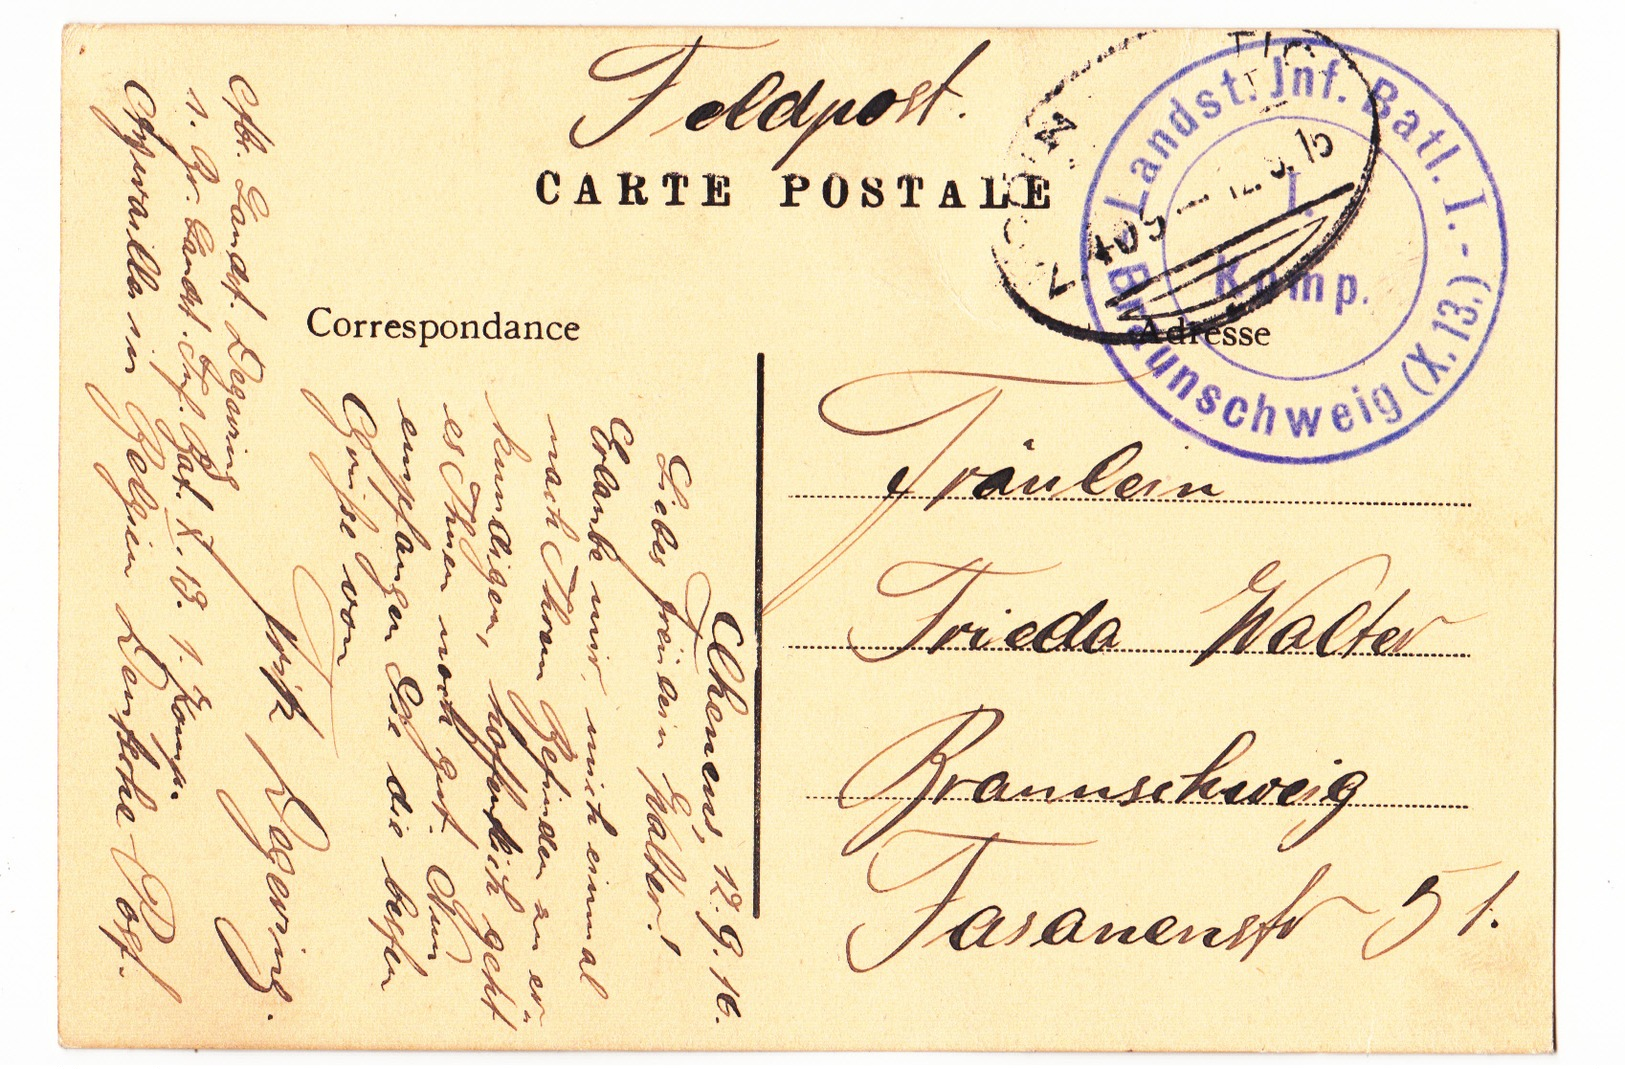 Feldpost.
CARTE POSTALE
Correspondance
Adresse
Landst. Jnf. Batl. I.-
Braunschweig (X. 13.)
1.
Komp.
Z. 409 — 12.9.
Fräulein
Frieda Walter
Braunschweig
Fasanenstr 51.
Chenens, 12.9.16.
Liebes Fräulein Walter!
Erlaube mir, mich einmal
nach Ihrem Befinden zu er⸗
kundigen, hoffentlich geht
es Ihnen noch gut. Nun
empfangen Sie die besten
Grüße von
Fritz Degering.
Abs. Landst. Degering
1. Br. Landst. Inf. Bat. X. 13. 1. Komp.
in Belgien Deutsche Post.